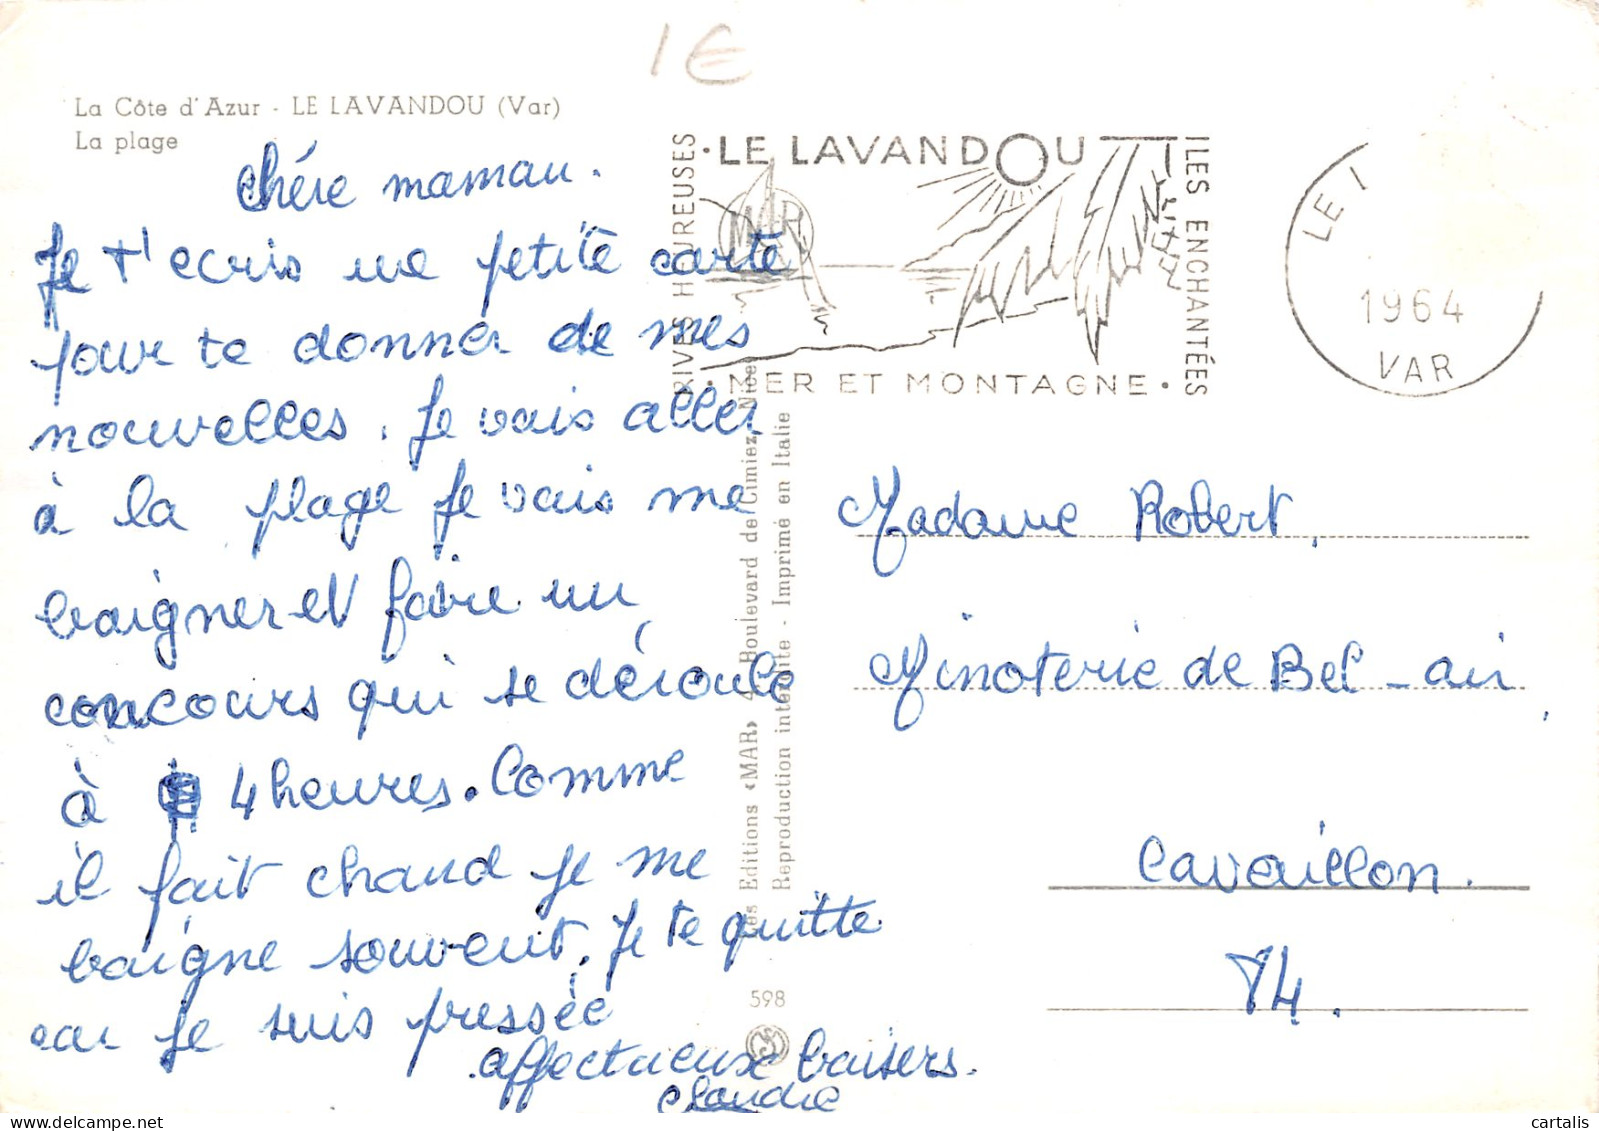 1€
La Côte d'Azur - LE LAVANDOU (Var)
La plage
chére maman.
Je t'ecris une petite carte
pour te donner de mes
nouvelles. Je vais aller
à la plage je vais me
baigner et faire un
concours qui se déroule
à 4 heures. Comme
il fait chaud je me
baigne souvent. Je te quitte
car je suis pressée
affectueux baisers.
claudie
Les Editions «MAR» 4, Boulevard de Cimiez, Nice
Reproduction interdite - Imprimé en Italie
598
RIVES HEUREUSES
LE LAVANDOU
ILES ENCHANTÉES
MER ET MONTAGNE
LE
1964
VAR
Madame Robert,
Minoterie de Bel-air,
Cavaillon.
84.
cartalis